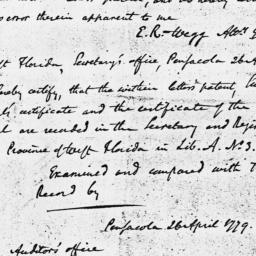 error therein apparent to me
E. R. Wegg Att.y G
est Florida, Secretary's office, Pensacola 26 A
ereby certify, that the within letters patent, the
certificate and the certificate of the
l are recorded in the Secretary and Regi
Province of West Florida in Lib. A. No. 3.
Examined and compared with T
Record by
Pensacola 26 April 1779.
Auditor's office